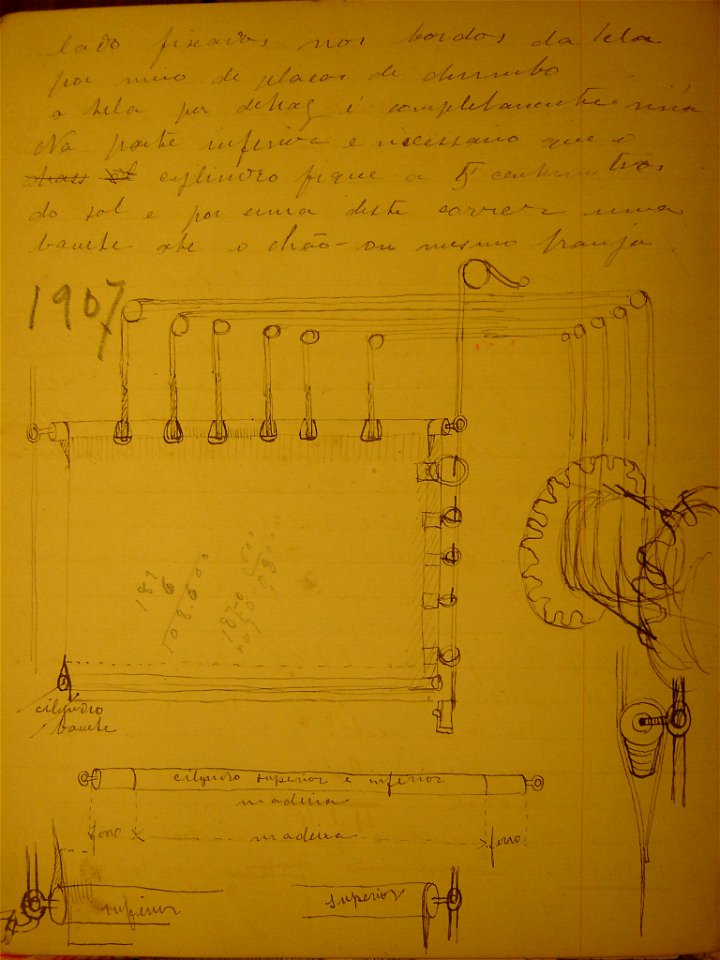 lado fixados nos bordos da tela
por meio de placas de chumbo
a tela por detraz é completamente
Na parte inferior e necessario que o
cylindro fique a 5 centimetros
do sol e por cima deste correr uma
bavete até o chão - ou mesmo franja
1907
187
6
108.600
cilyndro
bavete
cilyndro superior e inferior
madeira
ferro
madeira
ferro
inferior
superior